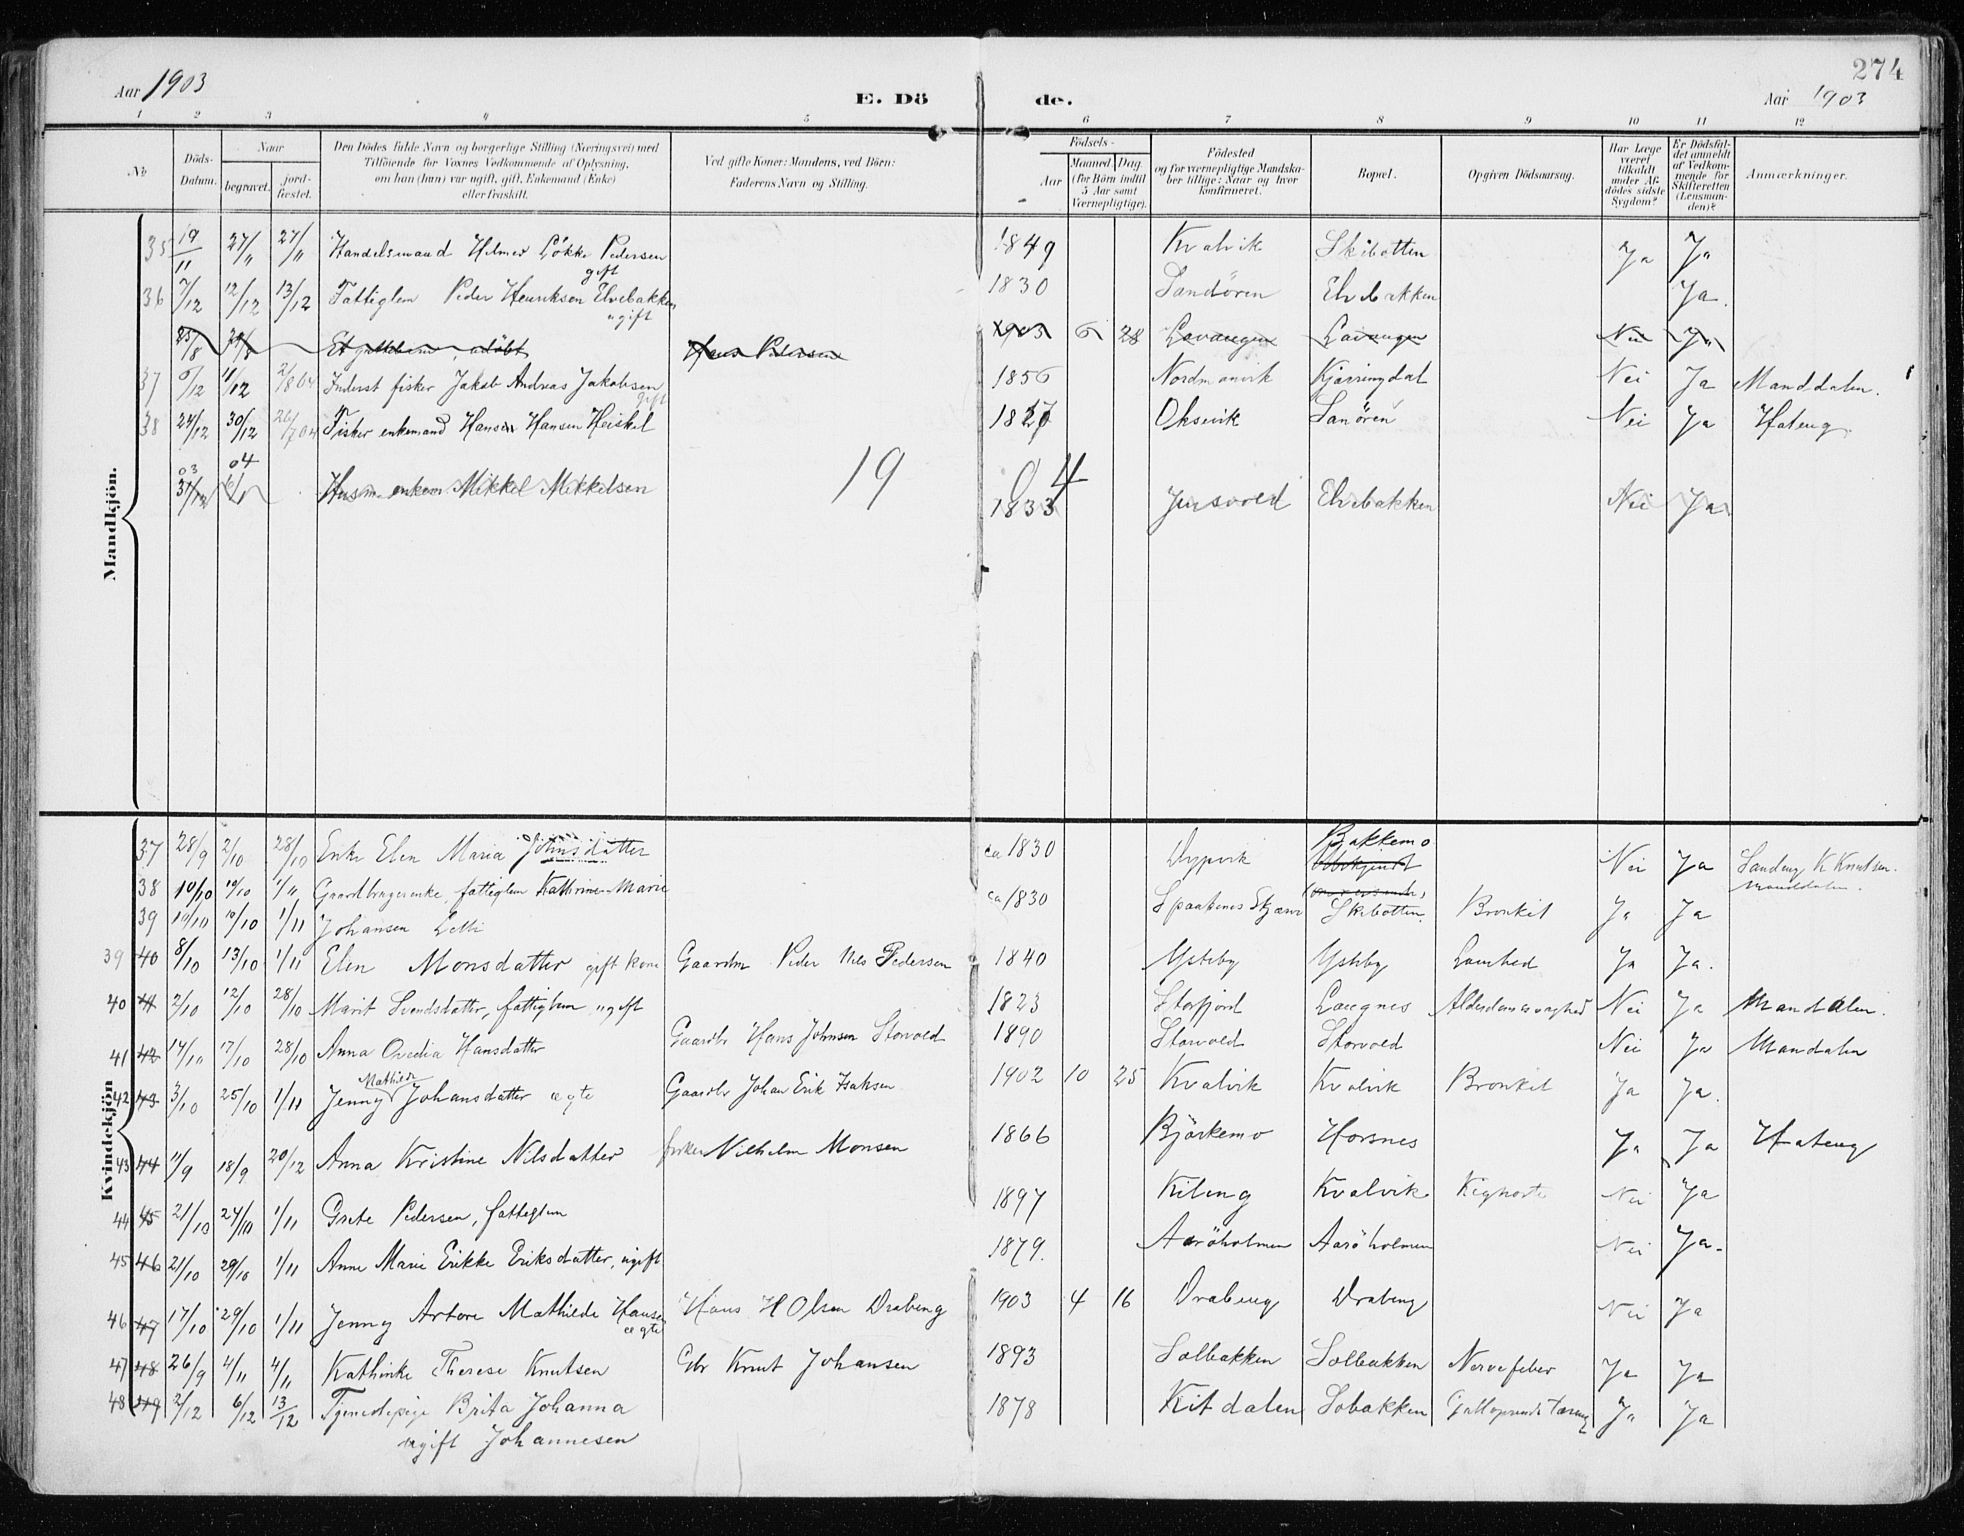 274
Aar 1903
E. Dö de.
Aar 1903
1 2 3 4 5 6 7 8 9 10 11 12
No
Döds-Datum.
Naar
begravet.
jord-fæstet.
Den Dödes fulde Navn og borgerlige Stilling (Næringsvei) med
Tilföiende for Voxnes Vedkommende af Oplysning,
om han (hun) var ugift, gift, Enkemand (Enke)
eller fraskilt.
Ved gifte Koner: Mandens, ved Börn:
Faderens Navn og Stilling.
Födsels-
Aar
Maaned. Dag.
(for Börn indtil
5 Aar samt
Værnepligtige).
Födested
og for værnepligtige Mandska-
ber tillige: Naar og hvor
konfirmeret.
Bopæl.
Opgiven Dödsaarsag.
Har Læge
været
tilkaldt
under Af-
dödes sidste
Sygdom?
Er Dödsfal-
det anmeldt
af Vedkom-
mende for
Skifteretten
(Lensman-
den)?
Anmærkninger.
Mandkjön.
35 19/11 27/11 27/11 Handelsmand Hilmer Lökke Pedersen gift 1849 Kvalvik Skibotten Ja Ja
36 7/12 12/12 13/12 Fattiglem Peder Henriksen Elvebakken ugift 1830 Sandören Elvebakken Ja.
25/8 Et guttebarn, udöbt Hans Pedersen 1903 6 28 Lavangen Lavangen Nei Ja
37 6/12 11/12 2/8 04 Inderst fisker Jakob Andreas Jakobsen gift 1856 Nordmanvik Kjörringdal Nei Ja Manddalen.
38 24/12 30/12 26/7 04 Fisker enkemand Hans Hansen Heiskel 1827 Oksvik Sanören Nei Ja Hateng.
1904
03 31/12 04 Husm. enkem Mikkel Mikkelsen 1833 Elvebakken Nei Ja
Kvindekjön
37 28/9 2/10 28/10 Enke Elen Maria Johnsdatter ca 1830 Dypvik Bakkemo Nei Ja Sandeng K Knutsen. Manddalen.
38 10/10 19/10 1/11 Gaardbrugerenke, fattiglem Kathrine Marie ca 1830 Skibotten. Bronkit Ja Ja
39 10/10 19/10 1/11 Johansen Letti
39 40 8/10 13/10 1/11 Elen Monsdatter gift kone Gaardm Peder Nils Pedersen 1840 Ysteby Ysteby Lamhed Ja Ja.
40 41 2/10 12/10 28/10 Marit Svendsdatter, fattiglem ugift 1823 Storfjord Langnes Alderdomssvaghed Nei Ja Mandalen.
41 42 14/10 17/10 28/10 Anna Ovedia Hansdatter Gaardbr Hans Johnsen Storvold 1890 Storvold Storvold Nei Ja Mandalen
42 43 3/10 25/10 1/11 Jenny Mathilde Johansdatter ægte Gaardbr Johan Erik Isaksen 1902 10 25 Kvalvik Kvalvik Bronkit Ja Ja.
43 44 11/9 18/9 20/12 Anna Kristine Nilsdatter fisker Vilhelm Monsen 1866 Björkemo Horsnes Ja Ja Hateng
44 45 21/10 24/10 1/11 Grete Pedersen, fattiglem 1897 Kileng Kvalvik Kighoste Nei Ja
45 46 21/10 29/10 1/11 Anne Marie Erikke Eriksdatter, ugift 1879. Aaröholmen Aaröholmen Nei Ja.
46 47 17/10 29/10 1/11 Jenny Artore Mathilde Hansen ægte Hans H Olsen Drabeng 1903 4 16 Drabeng Drabeng Nei Ja
47 48 26/9 4/11 4/11 Kathinke Therese Knutsen Gbr Knut Johansen 1893 Solbakken Solbakken Nervefeber Ja Ja
48 49 2/12 6/12 13/12 Tjenestepige Brita Johanna 1878 Kitdalen Sobakken Galloperende Tæring Ja Ja
ugift Johannesen